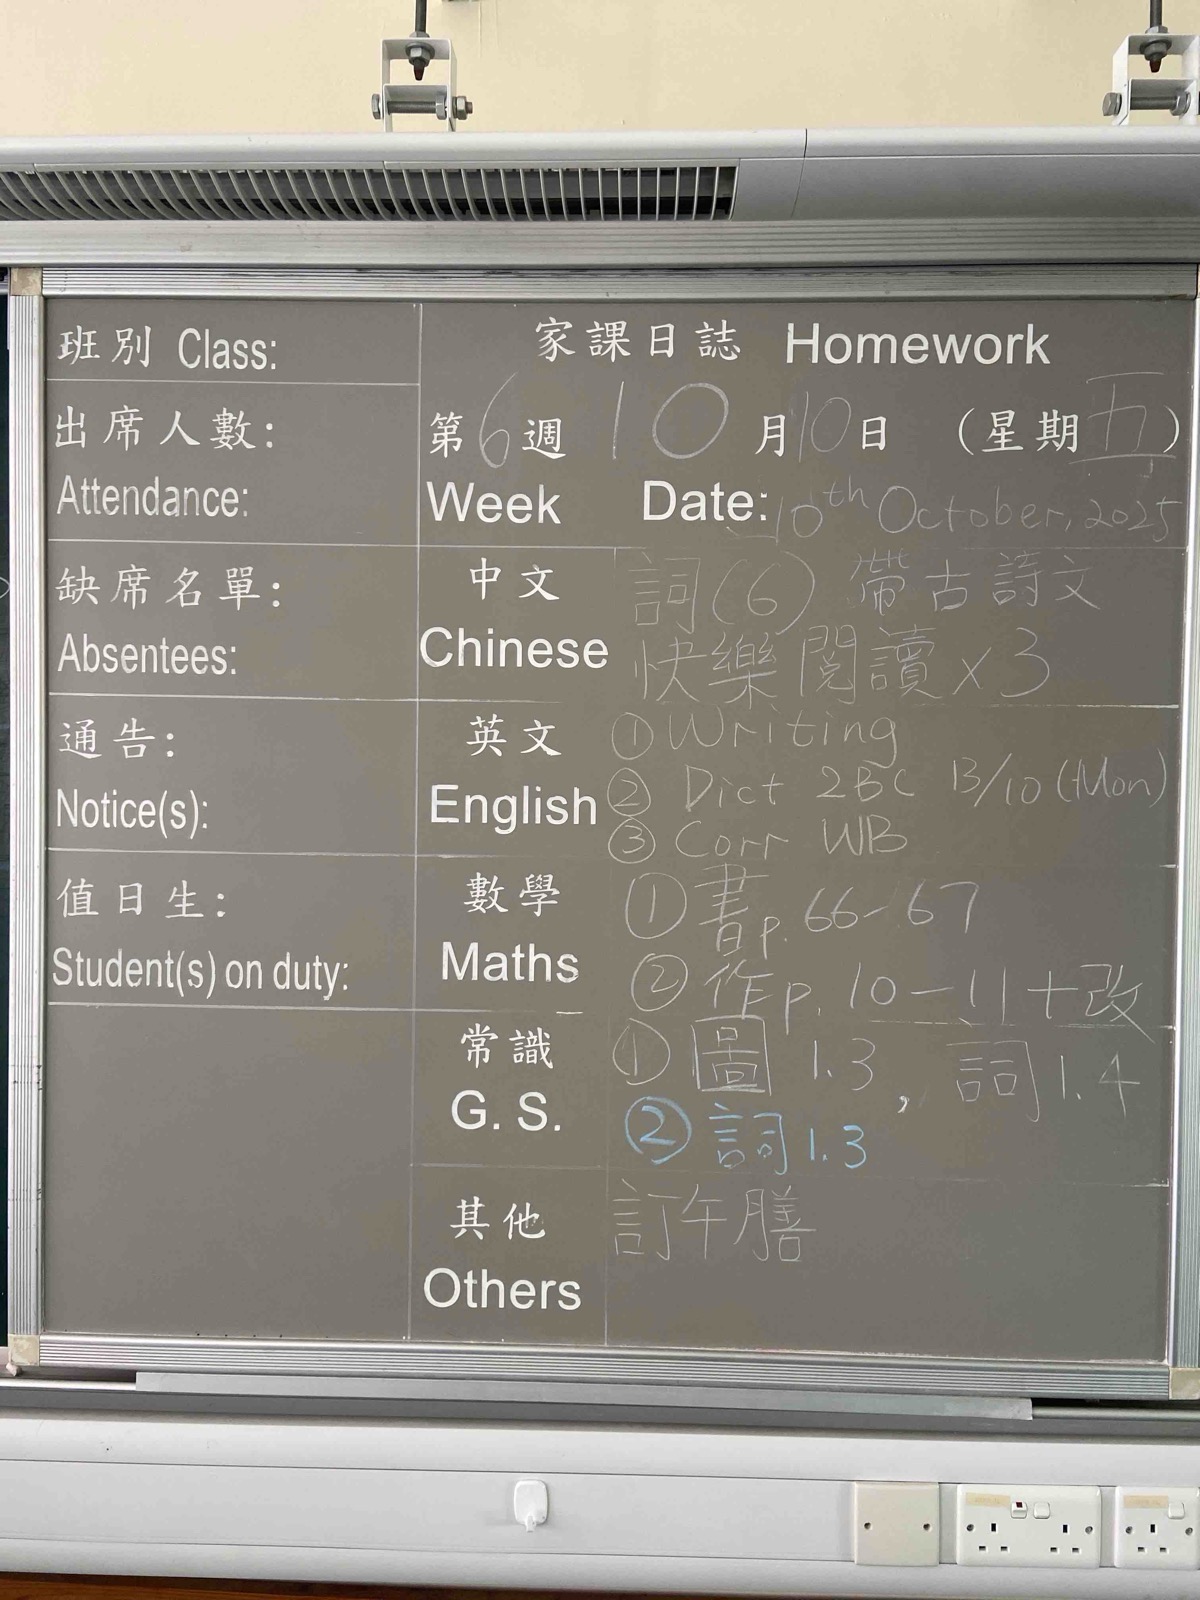 班別 Class:
出席人數:
Attendance:
缺席名單:
Absentees:
通告:
Notice(s):
值日生:
Student(s) on duty:
家課日誌 Homework
第6週 10月10日 (星期五)
Week Date: 10th October, 2025
中文
Chinese
詞(6) 帶古詩文
快樂閱讀x3
英文
English
①Writing
② Dict 2BC 13/10 (Mon)
③ Corr WB
數學
Maths
① 書p. 66-67
② 作p. 10-11+改
常識
G. S.
① 圖 1.3, 詞1.4
② 詞1.3
其他
Others
訂午膳